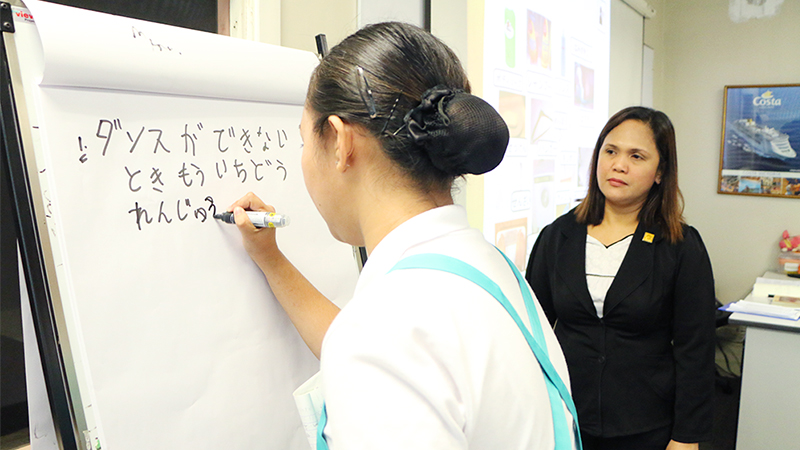 view
1. ダンスが できない
とき もういちどう
れんじゅう
Costa